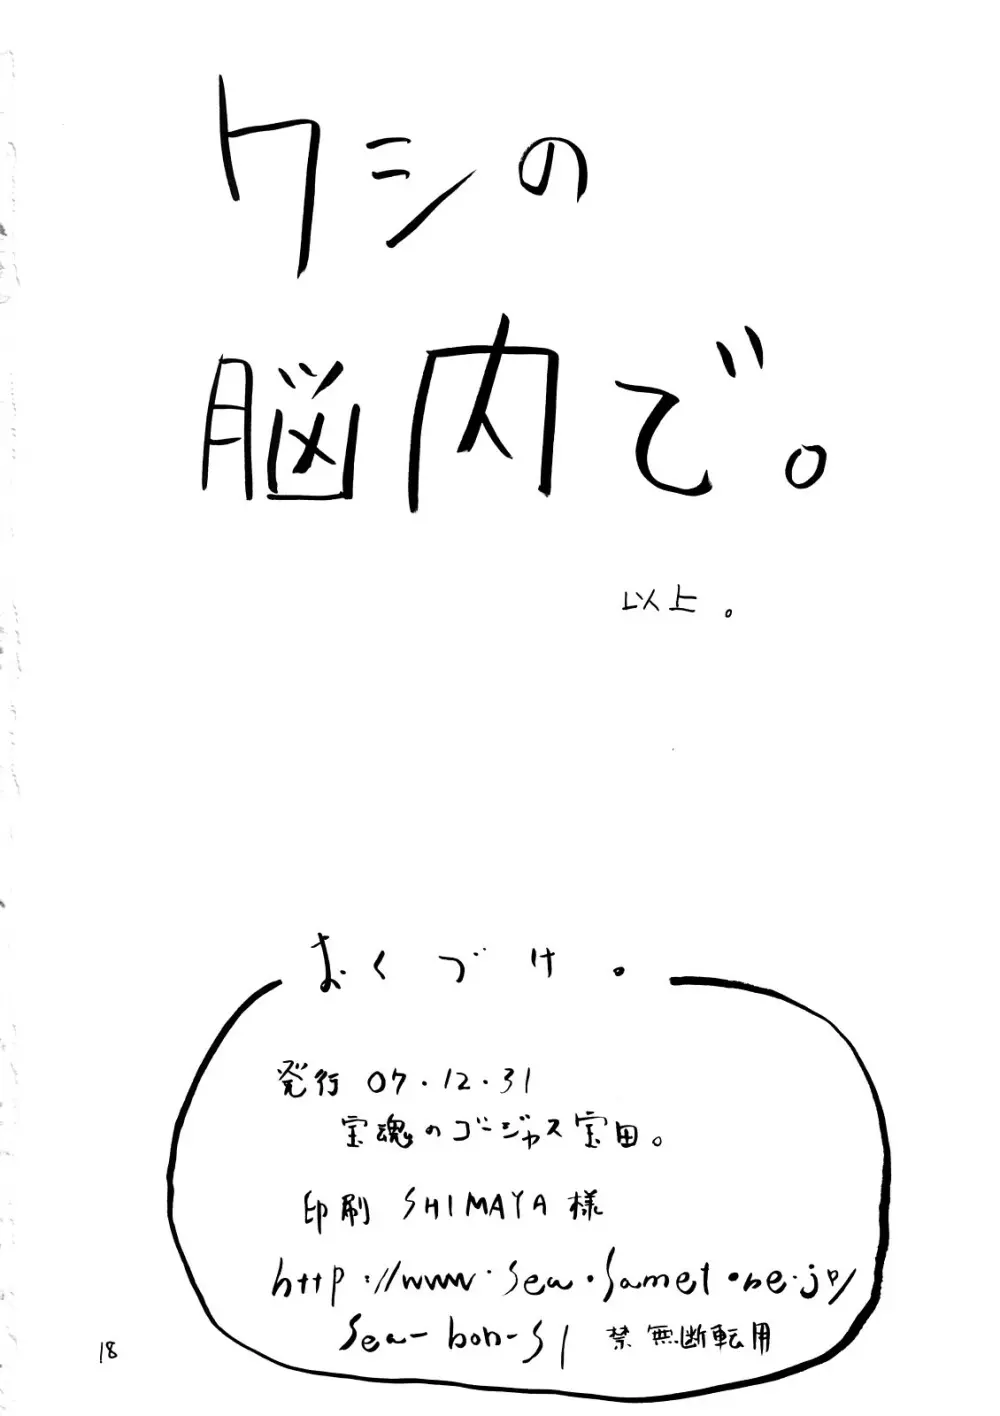 ワシの
脳内で。
以上。
おくづけ。
発行 07.12.31
宝魂のゴージャス宝田。
印刷 SHIMAYA様
http://www.sea.samet.ne.jp/
sea-bon-s1 禁無断転用
18